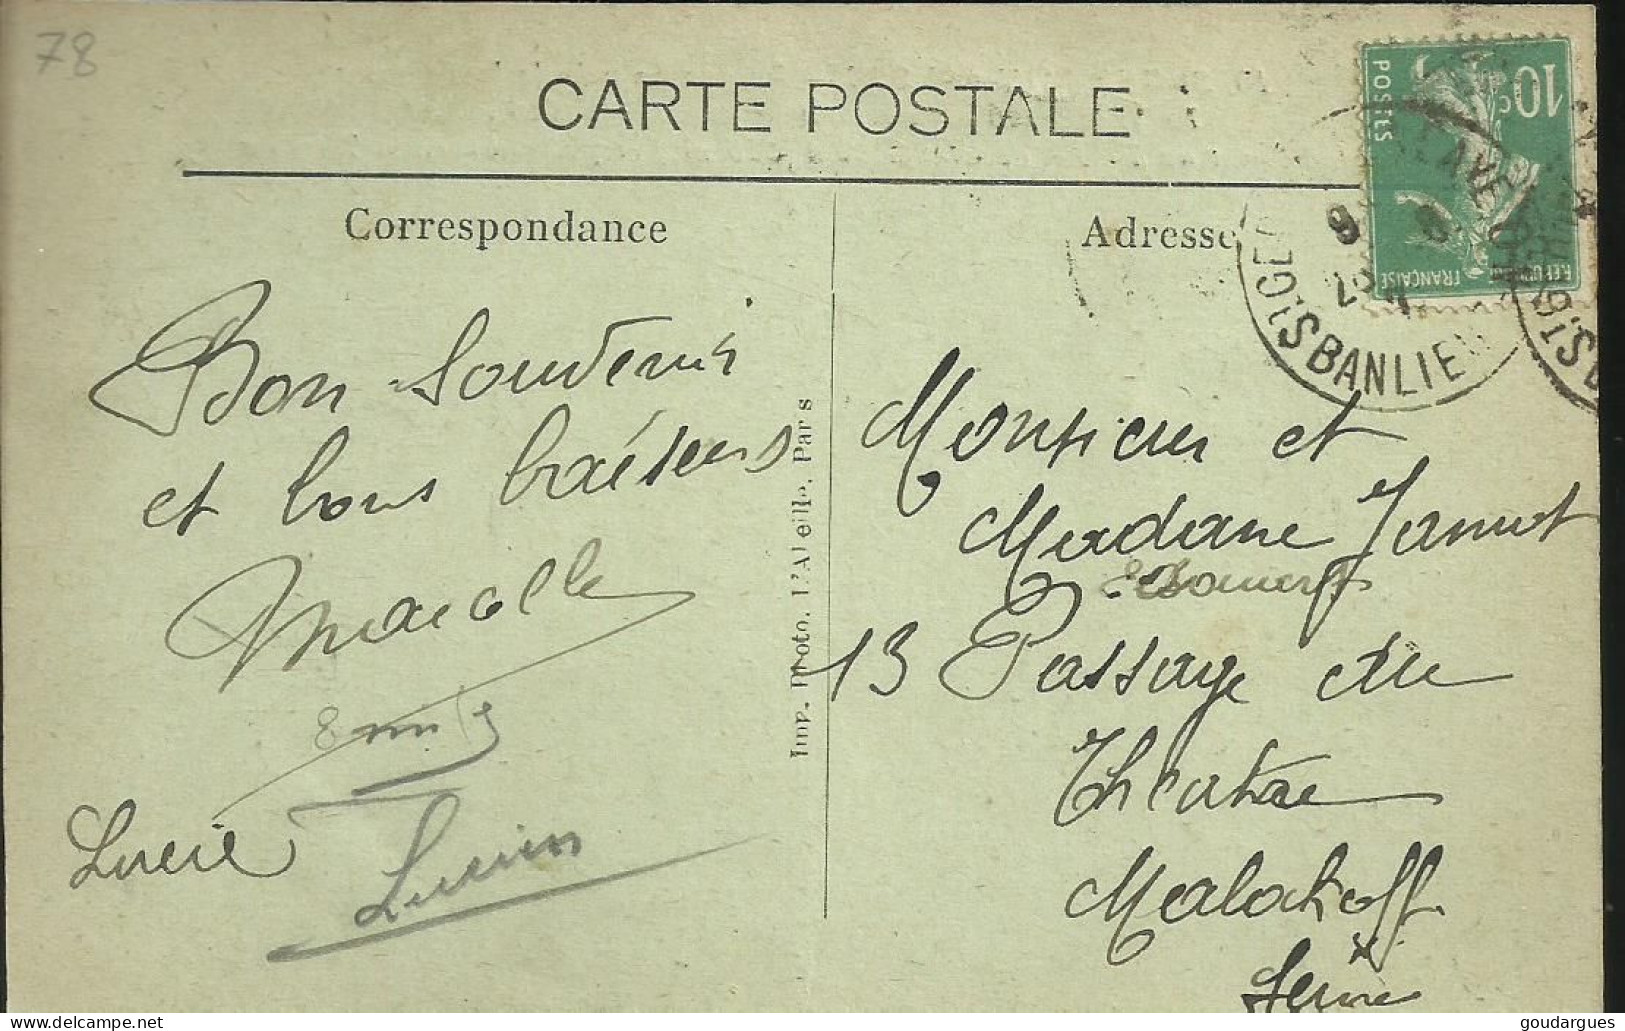 78
CARTE POSTALE
Correspondance
Adresse
10c
POSTES
FRANÇAISE
BANLIEU
Bon Souvenir
et bons baisers
Marcelle
Emile
Lucie
Lucien
Monsieur et
Madame Jamot
13 Passage du
Théatre
Malakoff
Seine
Imp. Photo. L'Abeille. Paris
delcampe.net
goudargues